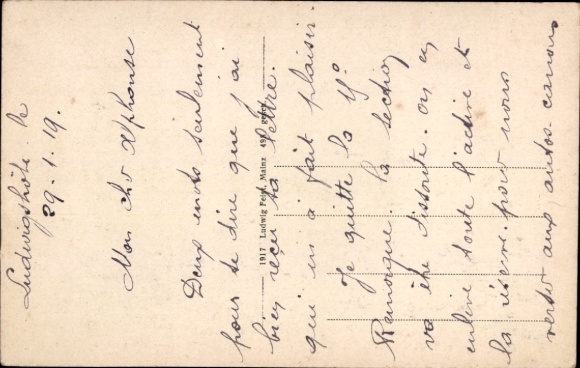 Ludwigshöhe le
29.1.19.
Mon cher Alphonse
Deux mots seulement
pour te dire que j'ai
bien reçu ta lettre.
qui m'a fait plaisir.
Je quitte la Yo
Remorque. la section
va être dissoute. on en
enlève toute l'active et
la réserve pour nous
verser aux autos-canons
1917 Ludwig Feist, Mainz 498 gesch.